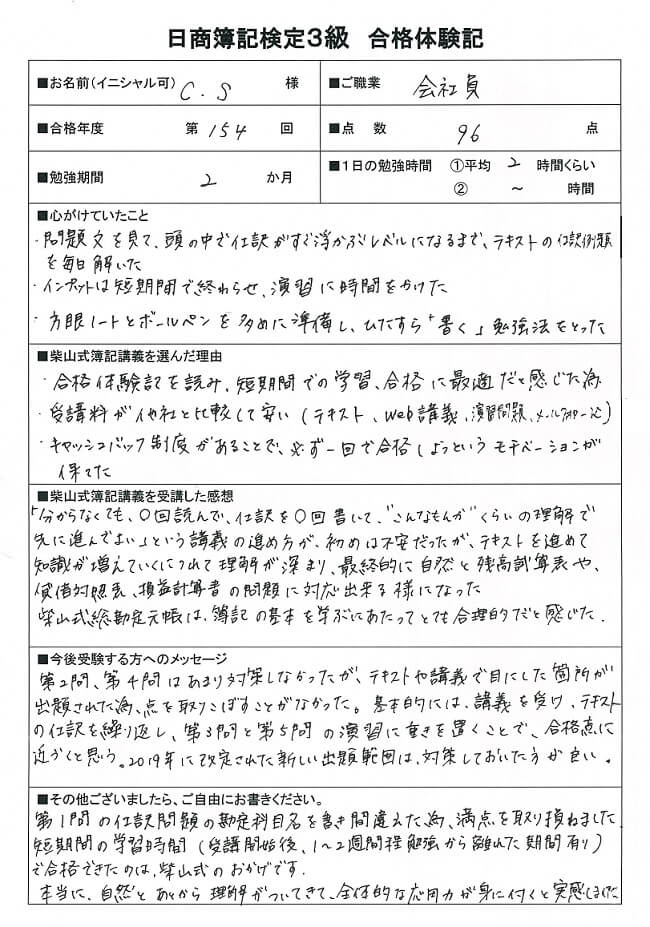 日商簿記検定3級 合格体験記
■お名前(イニシャル可) C.S 様 ■ご職業 会社員
■合格年度 第 154 回 ■点 数 96 点
■勉強期間 2 か月 ■1日の勉強時間 ①平均 2 時間くらい
② ～ 時間
■心がけていたこと
・問題文を見て、頭の中で仕訳がすぐ浮かぶレベルになるまで、テキストの仕訳例題
を毎日解いた
・インプットは短期間で終わらせ、演習に時間をかけた
・方眼ノートとボールペンを多めに準備し、ひたすら「書く」勉強法をとった
■柴山式簿記講義を選んだ理由
・合格体験記を読み、短期間での学習、合格に最適だと感じた為
・受講料が他社と比較して安い(テキスト、web講義、演習問題、メールフォロー込)
・キャッシュバック制度があることで、必ず一回で合格しようというモチベーションが
保てた
■柴山式簿記講義を受講した感想
「分からなくても、〇回読んで、仕訳を〇回書いて、"こんなもんか"くらいの理解で
先に進んでよい」という講義の進め方が、初めは不安だったが、テキストを進めて
知識が増えていくにつれて理解が深まり、最終的に自然と残高試算表や、
貸借対照表、損益計算書の問題に対応出来る様になった
柴山式総勘定元帳は、簿記の基本を学ぶにあたってとても合理的だと感じた.
■今後受験する方へのメッセージ
第2問、第4問はあまり対策しなかったが、テキストや講義で目にした箇所が
出題された為、点を取りこぼすことがなかった。基本的には、講義を受け、テキスト
の仕訳を繰り返し、第3問と第5問の演習に重きを置くことで、合格点に
近づくと思う。2019年に改定された新しい出題範囲は、対策しておいた方が良い。
■その他ございましたら、ご自由にお書きください。
第1問の仕訳問題の勘定科目名を書き間違えた為、満点を取り損ねました
短期間の学習時間(受講開始後、1～2週間程勉強から離れた期間有り)
で合格できたのは、柴山式のおかげです.
本当に、自然とあとから理解がついてきて、全体的な応用力が身に付くと実感しました